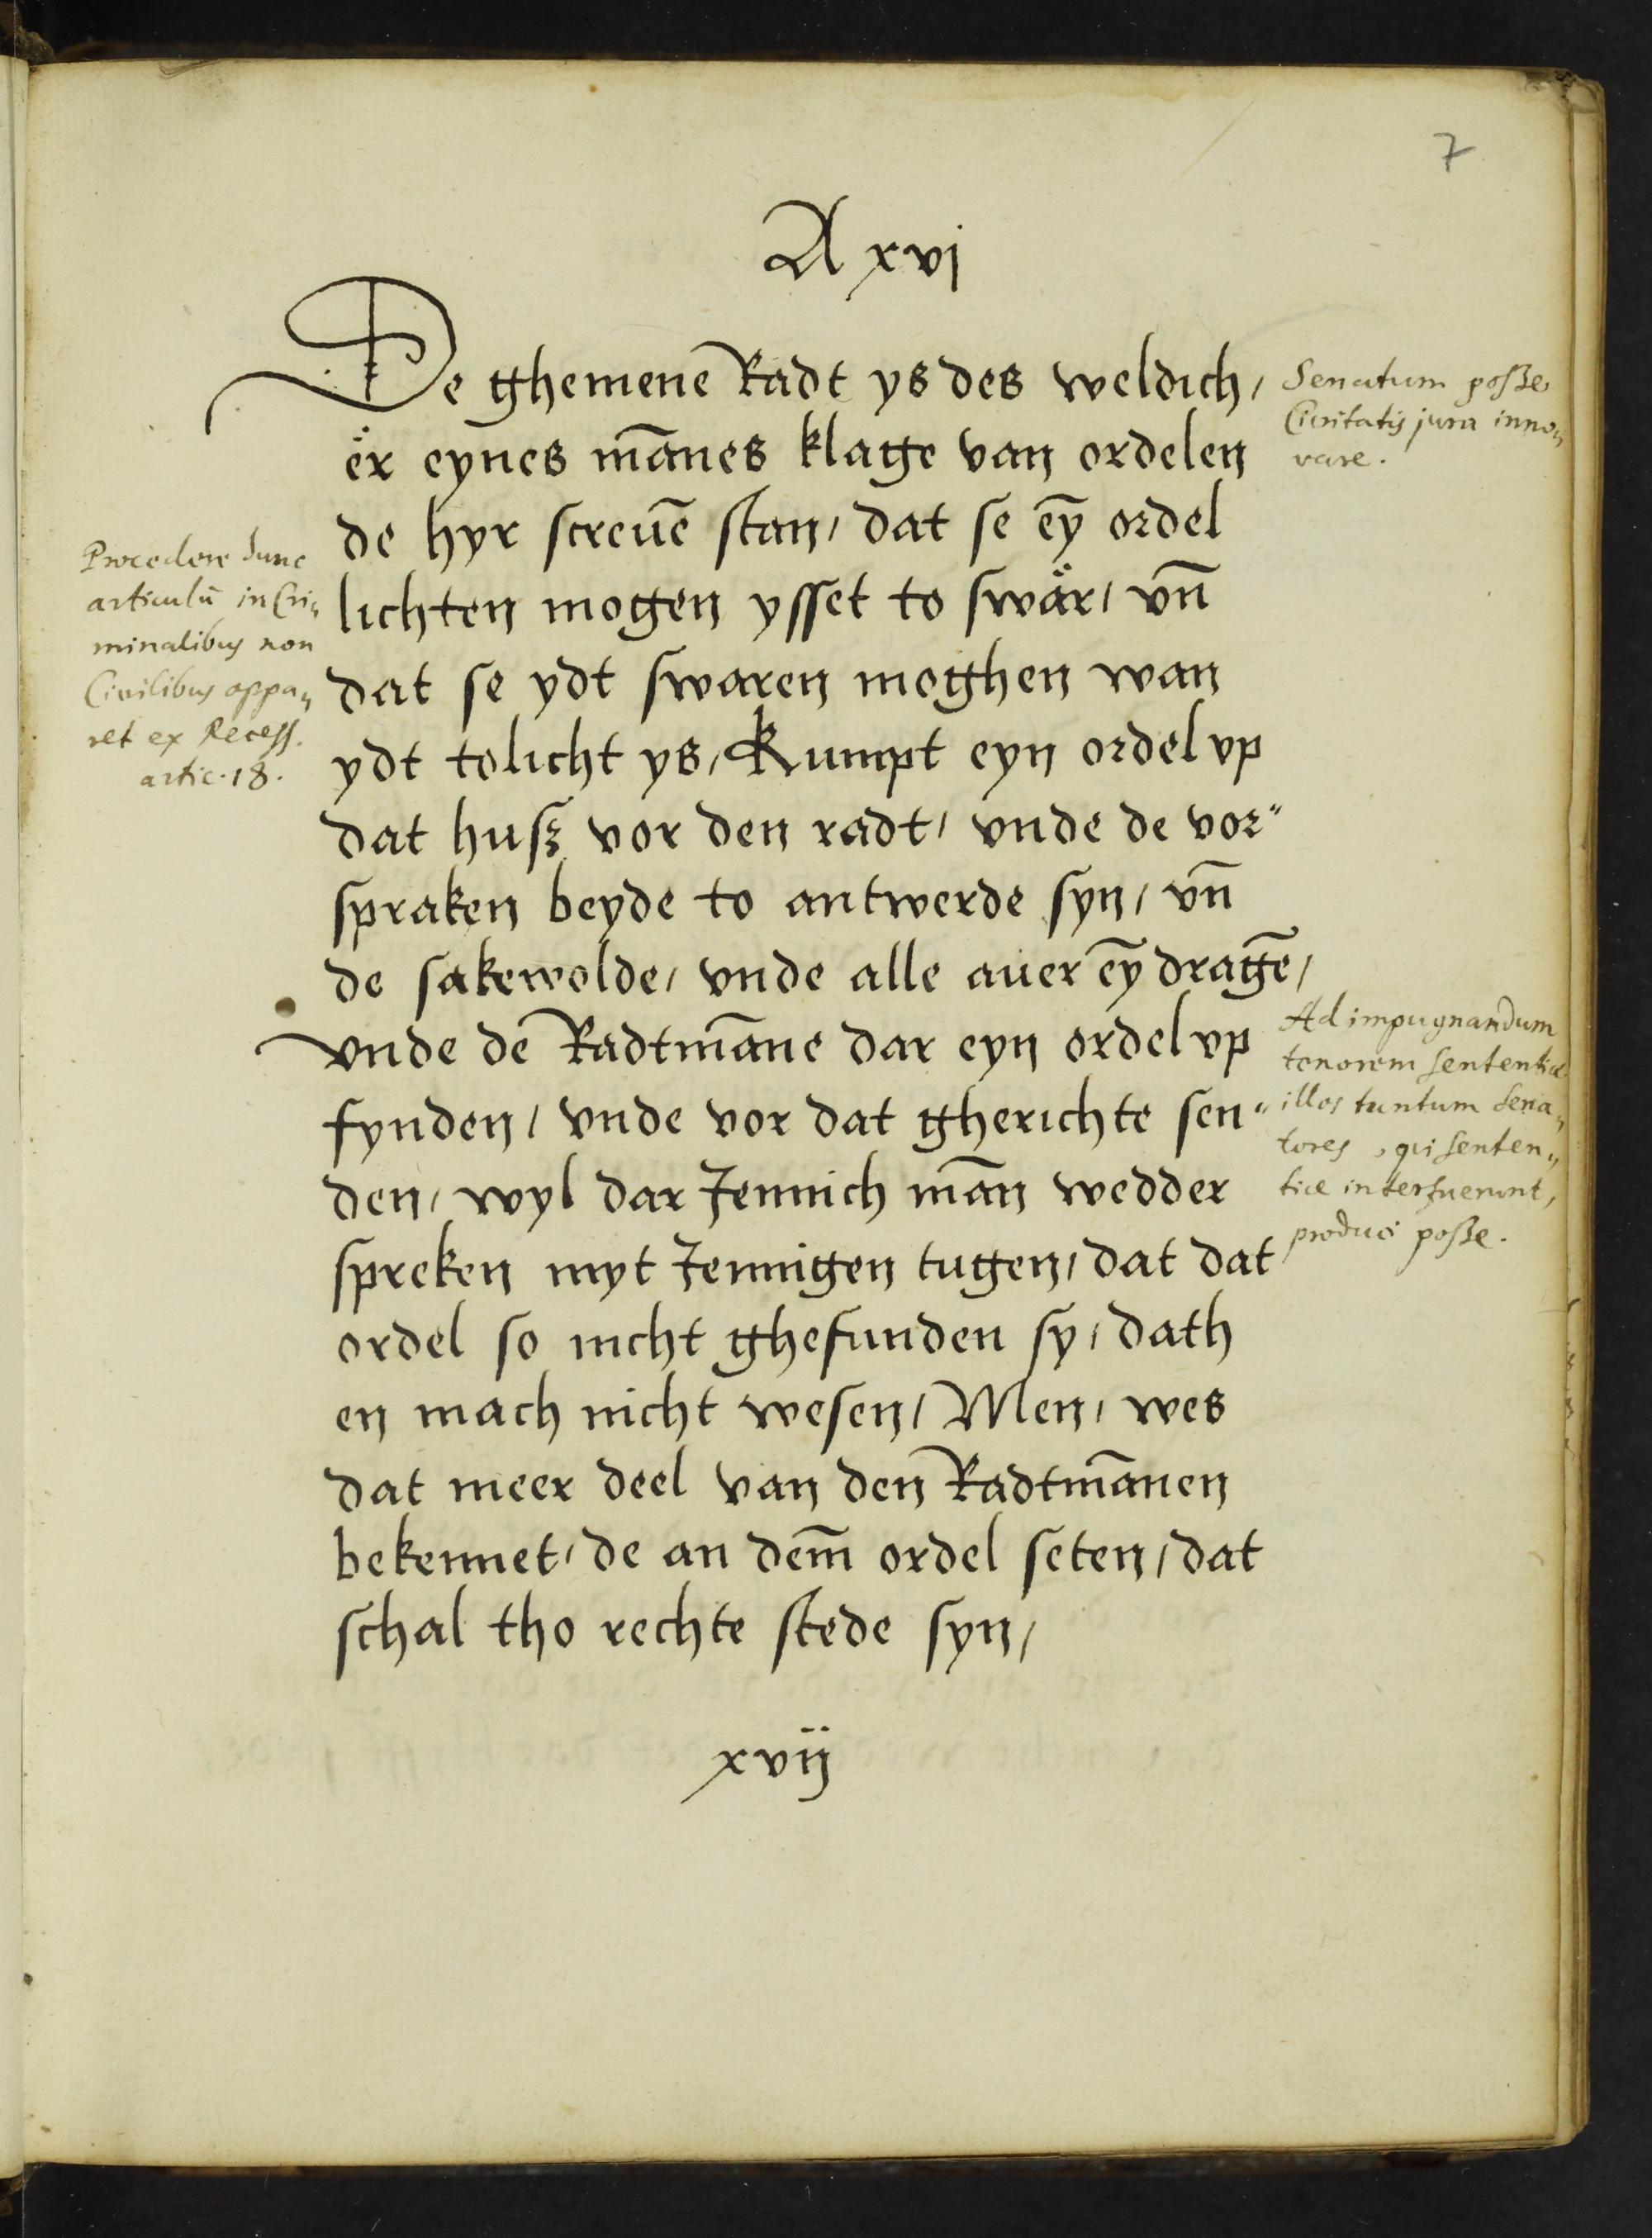 7
A xvj
De ghemene Radt ys des weldich/
er eynes mānes klage van ordelen
de hyr screuē stan/ dat se eȳ ordel
lichten mogen ysset to swär/ vn̄
dat se ydt swaren moghen wan
ydt tolicht ys/ Kumpt eyn ordel vp
dat husz vor den radt/ vnde de vor"
spraken beyde to antwerde syn/ vn̄
de sakewolde/ vnde alle auer eȳ dragē/
vnde de Radtmāne dar eyn ordel vp
fynden/ vnde vor dat gherichte sen"
den/ wyl dar Jennich mān wedder
spreken myt Jennigen tugen/ dat dat
ordel so nicht ghefunden sy/ dath
en mach nicht wesen/ Men/ wes
dat meer deel van den Radtmānen
bekennet/ de an dem̄ ordel seten/ dat
schal tho rechte stede syn/
xvij
Senatum posse
Civitatis jura inno„
vare.
Procedere hunc
articulū in Cri„
minalibus non
Civilibus appa„
ret ex Recess.
artic. 18.
Ad impugnandum
tenorem sententiæ
illos tantum Sena„
tores, qui senten„
tiæ interfuerunt,
produci posse.